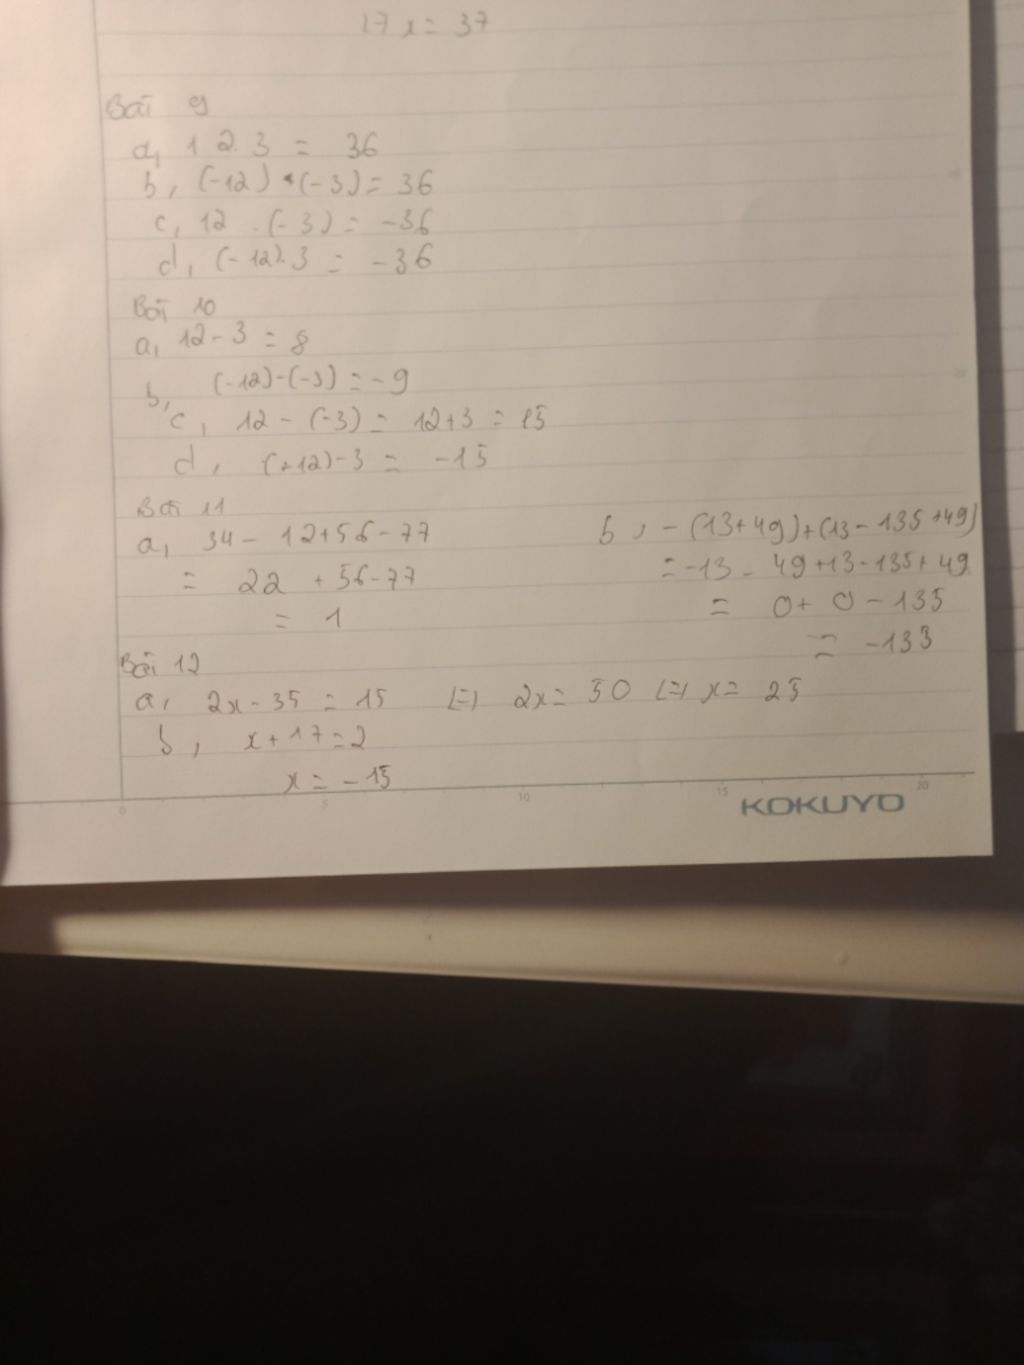 17 x = 37
Bài 9
a, 12.3 = 36
b, (-12) . (-3) = 36
c, 12 . (-3) = -36
d, (-12).3 = -36
Bài 10
a, 12 - 3 = 8
b, (-12)-(-3) = -9
c, 12 - (-3) = 12+3 = 15
d, (-12)-3 = -15
Bài 11
a, 34 - 12+56-77
= 22 +56-77
= 1
b, -(13+49)+(13-135+49)
= -13 - 49+13-135+49
= 0+ 0 - 135
= -135
Bài 12
a, 2x-35 = 15 (=) 2x= 50 (=) x= 25
b, x+17=2
x = -15
0 5 10 15 20
KOKUYO